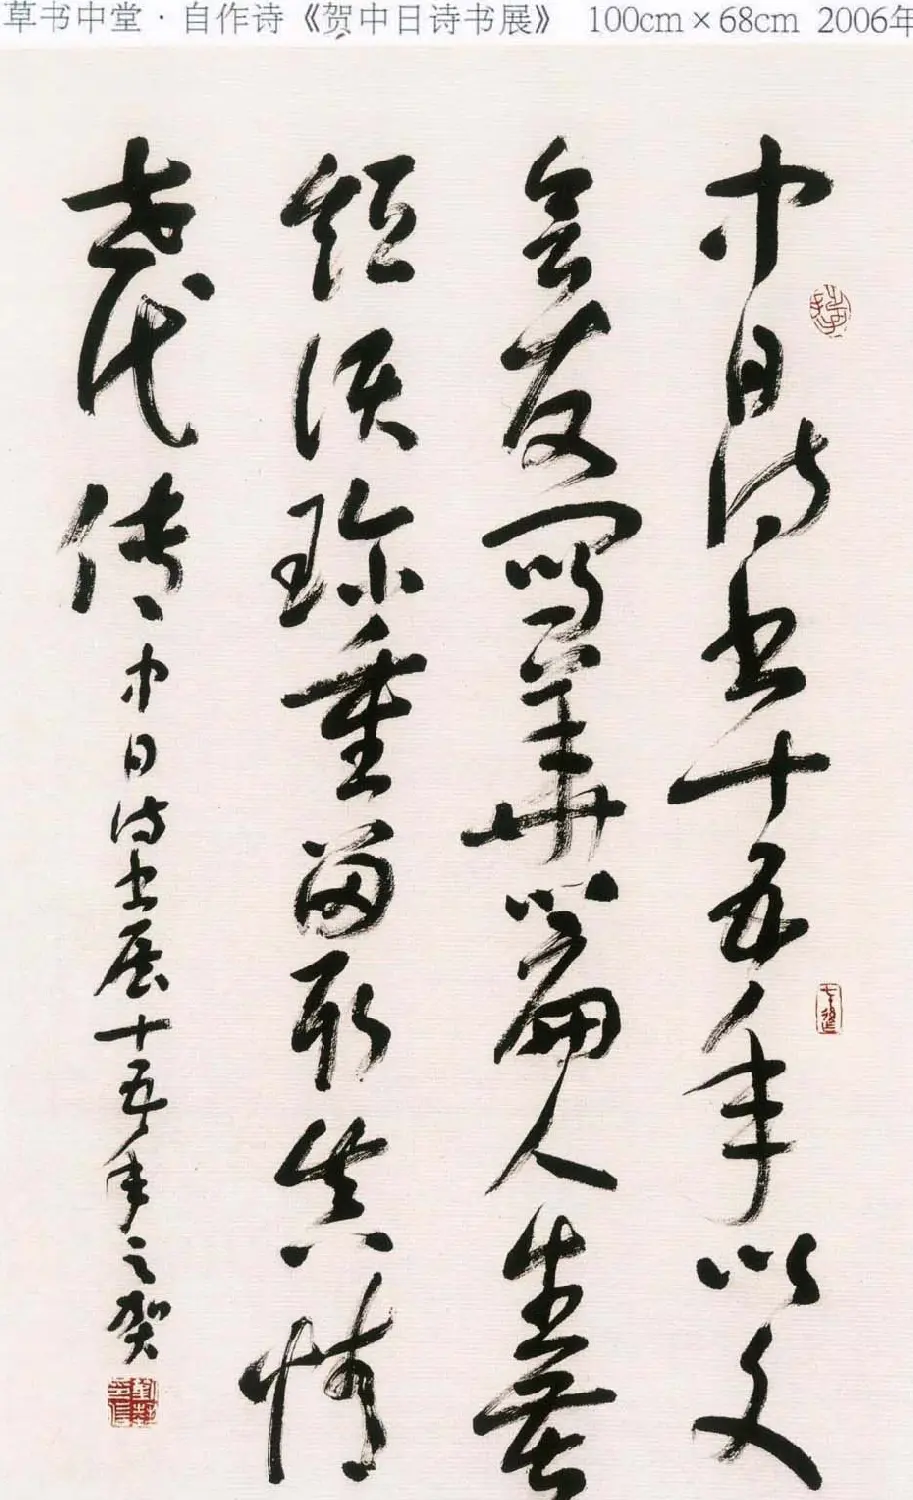 草书中堂·自作诗《贺中日诗书展》 100cm×68cm 2006年
中日诗书十五年以文
会友写华篇人生苦
短须珍重留取真情
世代传
中日诗书展十五年之贺